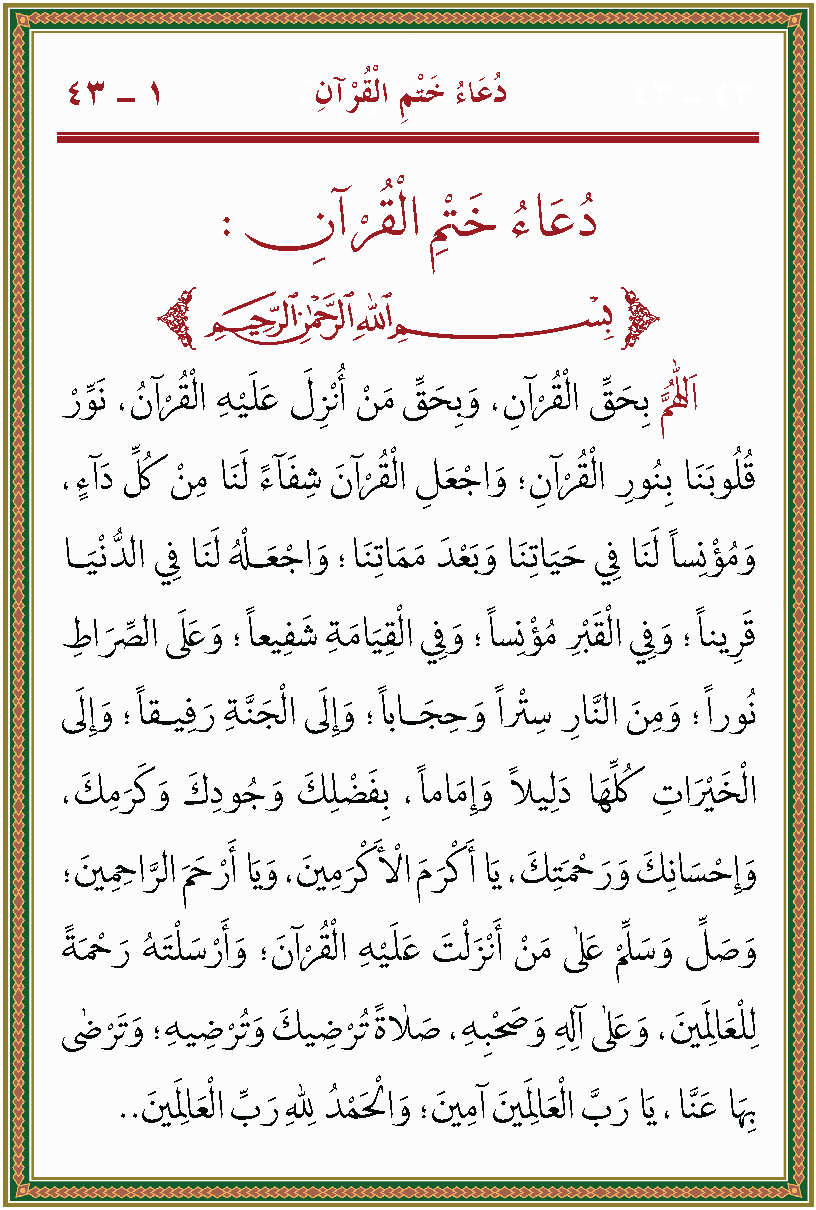 دُعَاءُ خَتْمِ الْقُرْآنِ ١ – ٤٣
دُعَاءُ خَتْمِ الْقُرْآنِ :
بِسْمِ اللهِ الرَّحْمٰنِ الرَّحِيمِ
اَللّٰهُمَّ بِحَقِّ الْقُرْآنِ، وَبِحَقِّ مَنْ أُنْزِلَ عَلَيْهِ الْقُرْآنُ، نَوِّرْ
قُلُوبَنَا بِنُورِ الْقُرْآنِ؛ وَاجْعَلِ الْقُرْآنَ شِفَآءً لَنَا مِنْ كُلِّ دَآءٍ،
وَمُؤْنِساً لَنَا فِي حَيَاتِنَا وَبَعْدَ مَمَاتِنَا؛ وَاجْعَلْهُ لَنَا فِي الدُّنْيَا
قَرِيناً؛ وَفِي الْقَبْرِ مُؤْنِساً؛ وَفِي الْقِيَامَةِ شَفِيعاً؛ وَعَلَى الصِّرَاطِ
نُوراً؛ وَمِنَ النَّارِ سِتْراً وَحِجَاباً؛ وَإِلَى الْجَنَّةِ رَفِيقاً؛ وَإِلَى
الْخَيْرَاتِ كُلِّهَا دَلِيلاً وَإِمَاماً، بِفَضْلِكَ وَجُودِكَ وَكَرَمِكَ،
وَإِحْسَانِكَ وَرَحْمَتِكَ، يَا أَكْرَمَ الْأَكْرَمِينَ، وَيَا أَرْحَمَ الرَّاحِمِينَ؛
وَصَلِّ وَسَلِّمْ عَلٰى مَنْ أَنْزَلْتَ عَلَيْهِ الْقُرْآنَ؛ وَأَرْسَلْتَهُ رَحْمَةً
لِلْعَالَمِينَ، وَعَلٰى آلِهِ وَصَحْبِهِ، صَلَاةً تُرْضِيكَ وَتُرْضِيهِ؛ وَتَرْضٰى
بِهَا عَنَّا، يَا رَبَّ الْعَالَمِينَ آمِينَ؛ وَالْحَمْدُ لِلّٰهِ رَبِّ الْعَالَمِينَ..